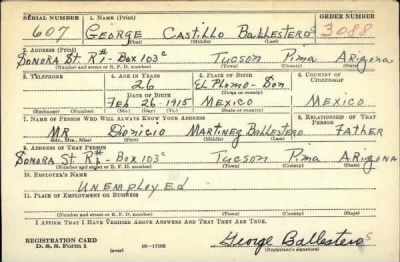 SERIAL NUMBER 1. NAME (Print) ORDER NUMBER
607 GEORGE CASTILLO BALLESTEROS 3088
(First) (Middle) (Last)
2. ADDRESS (Print)
SONORA ST. Rt#1- BOX 103c TUCSON PIMA ARIZONA
(Number and street or R. F. D. number) (Town) (County) (State)
3. TELEPHONE 4. AGE IN YEARS 5. PLACE OF BIRTH 6. COUNTRY OF CITIZENSHIP
26 EL PLOMO - SON
DATE OF BIRTH (Town or county)
FEB 26. 1915 MEXICO MEXICO
(Exchange) (Number) (Mo.) (Day) (Yr.) (State or country)
7. NAME OF PERSON WHO WILL ALWAYS KNOW YOUR ADDRESS 8. RELATIONSHIP OF THAT PERSON
MR. DIONICIO MARTINEZ BALLESTERO FATHER
(Mr., Mrs., Miss) (First) (Middle) (Last)
9. ADDRESS OF THAT PERSON
SONORA ST Rt#1- BOX 103c TUCSON PIMA ARIZONA
(Number and street or R. F. D. number) (Town) (County) (State)
10. EMPLOYER'S NAME
UNEMPLOYED
11. PLACE OF EMPLOYMENT OR BUSINESS
(Number and street or R. F. D. number) (Town) (County) (State)
I AFFIRM THAT I HAVE VERIFIED ABOVE ANSWERS AND THAT THEY ARE TRUE.
REGISTRATION CARD
D. S. S. Form 1 (over) 16-17105 George Ballesteros
(Registrant's signature)